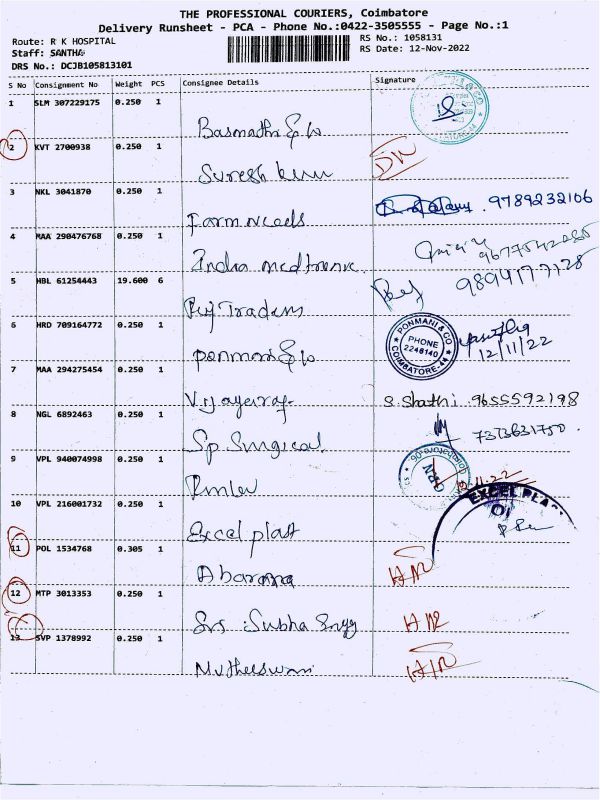 THE PROFESSIONAL COURIERS, Coimbatore
Delivery Runsheet - PCA - Phone No.:0422-3505555 - Page No.:1
Route: R K HOSPITAL
RS No.: 1058131
Staff: SANTHA
RS Date: 12-Nov-2022
DRS No.: DCJB105813101
S No Consignment No Weight PCS Consignee Details Signature
1 SLM 307229175 0.250 1
2 KVT 2700938 0.250 1
Suresh
3 NKL 3041870 0.250 1
Farm needs 9789232106
4 MAA 290476768 0.250 1
India
5 HBL 61254443 19.600 6 9894177128
Traders
6 HRD 709164772 0.250 1
PONMANI & CO
PHONE
2246140
COIMBATORE-44
12/11/22
7 MAA 294275454 0.250 1
Vijayaraj S. Shathi 9655592198
8 NGL 6892463 0.250 1
Sp Surgical 7373631750
9 VPL 940074998 0.250 1
10 VPL 216001732 0.250 1
Excel plast
EXCEL
11 POL 1534768 0.305 1
Abarana
12 MTP 3013353 0.250 1
Subha
13 SVP 1378992 0.250 1
Mutheeswari